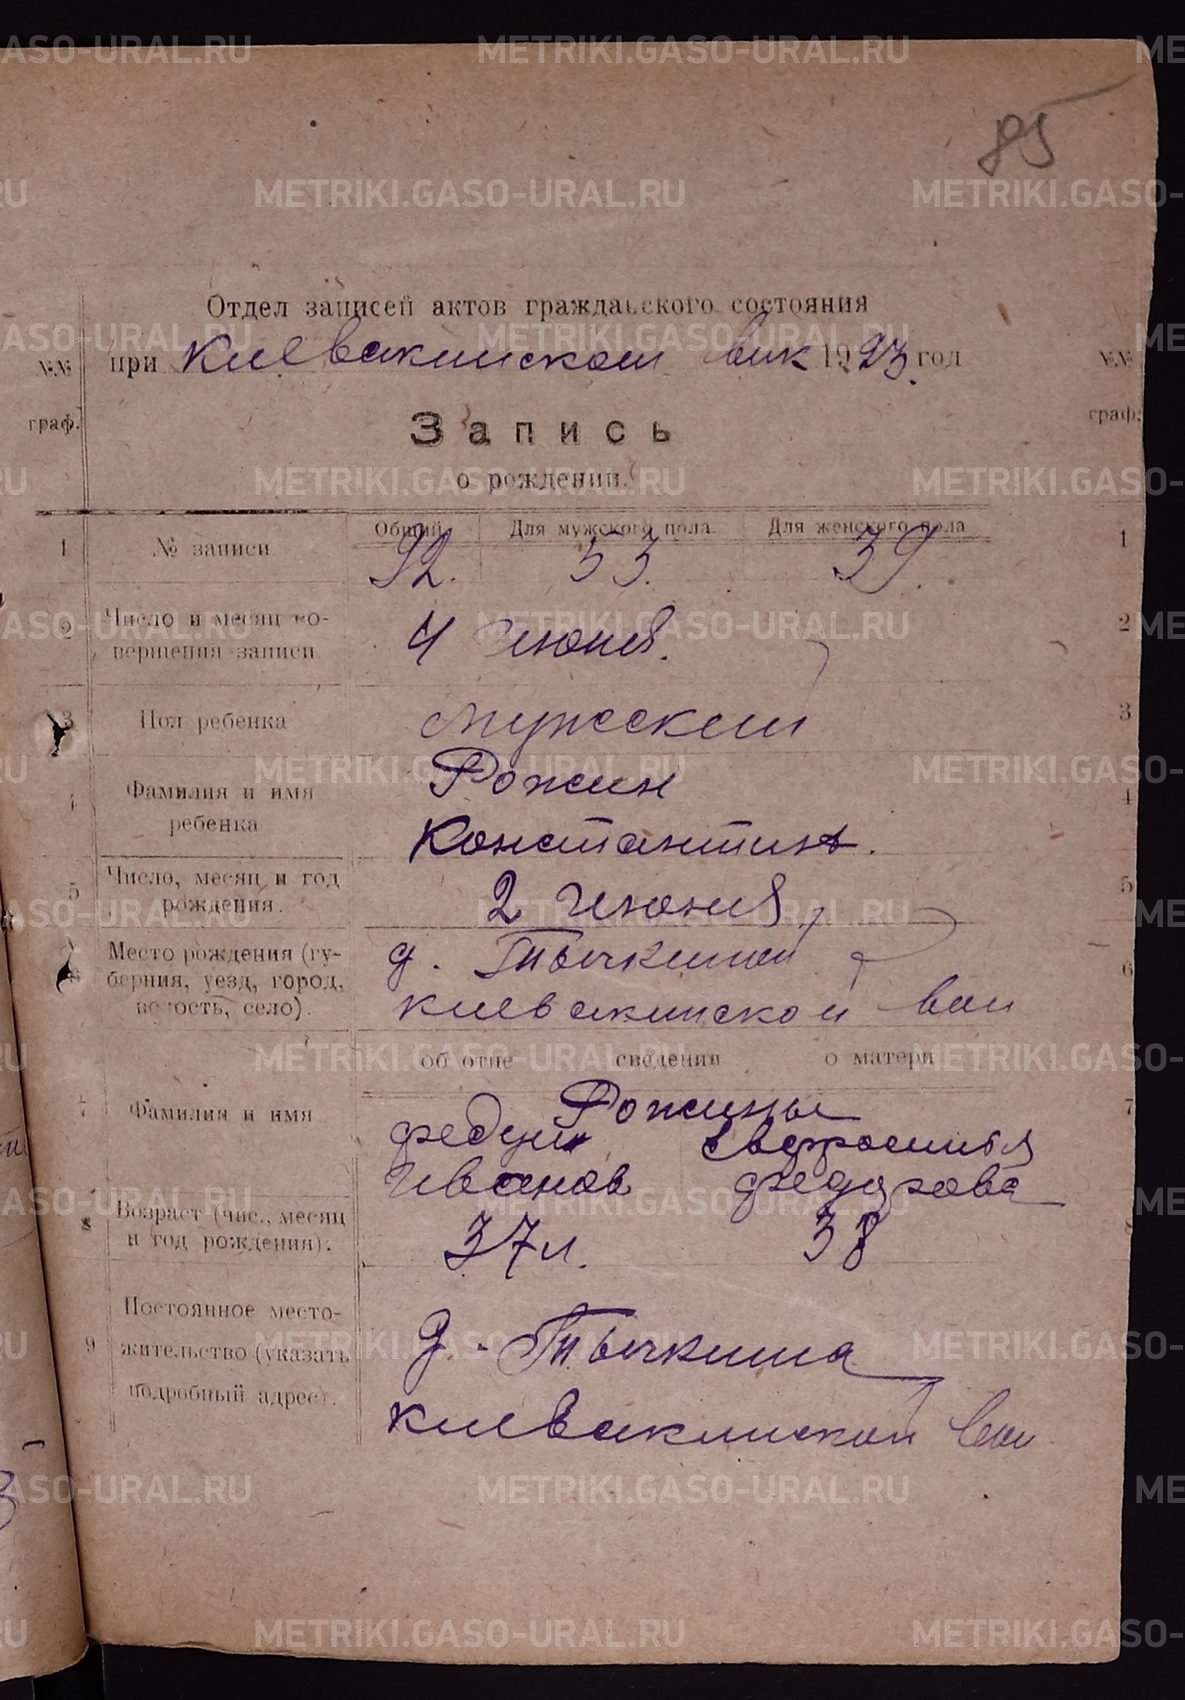 85
Отдел записей актов гражданского состояния
при Клевакинском вик 1923 год
№№ граф.
№№ граф.
Запись
о рождении.
Общий Для мужского пола. Для женского пола
1 № записи 92. 53. 39. 1
2 Число и месяц со-
вершения записи 4 июня. 2
3 Пол ребенка мужской 3
4 Фамилия и имя
ребенка Рожин
Константин. 4
5 Число, месяц и год
рождения. 2 июня. 5
Место рождения (гу-
берния, уезд, город,
волость, село). д. Тычкиной
Клевакинской вол 6
об отце сведения о матери
7 Фамилия и имя Рожины 7
Иванов Федорова
8 Возраст (чис., месяц
и год рождения). 37 л. 38 8
9 Постоянное место-
жительство (указать
подробный адрес). д. Тычкина
Клевакинской вол
METRIKI.GASO-URAL.RU